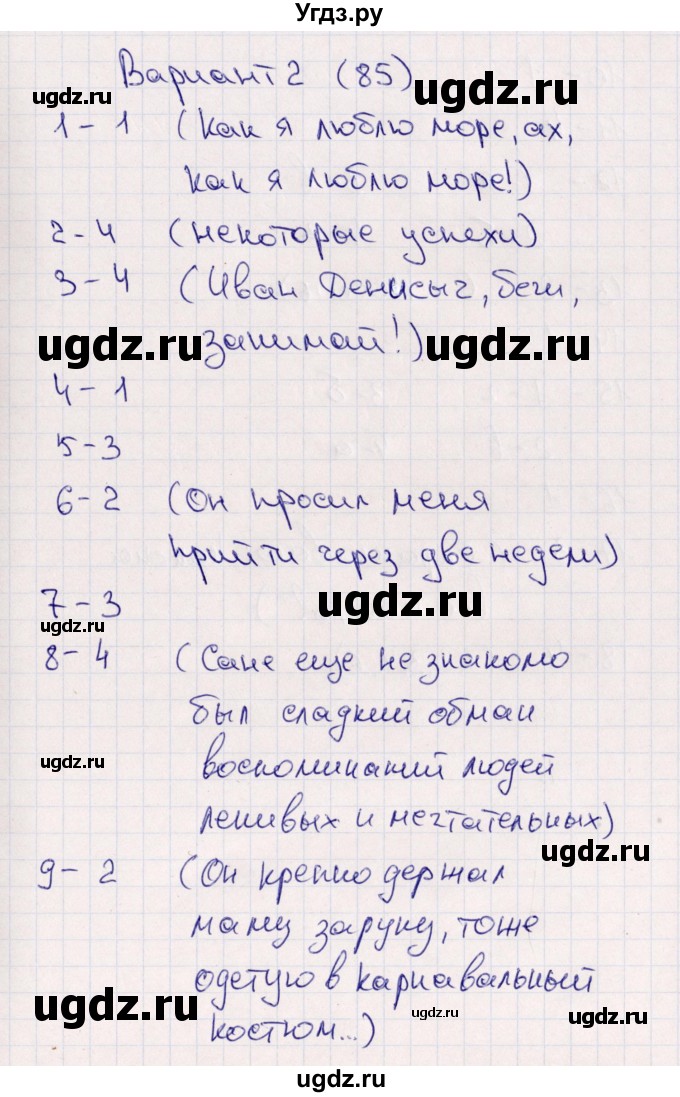 Угдз.ру
Вариант 2 (85)
ugdz.ru
ugdz.ru
1 - 1 (Как я люблю море, ах,
как я люблю море!)
2 - 4 (некоторые успехи)
3 - 4 (Иван Денисыч, беги,
занимай!)
ugdz.ru
ugdz.ru
4 - 1
5 - 3
6 - 2 (Он просил меня
прийти через две недели)
7 - 3
ugdz.ru
ugdz.ru
8 - 4 (Сане еще не знакомо
был сладкий обман
ugdz.ru
воспоминаний людей
ленивых и мечтательных)
ugdz.ru
9 - 2 (Он крепко держал
маму за руку, тоже
одетую в карнавальный
ugdz.ru
костюм...)
ugdz.ru
ugdz.ru
ugdz.ru